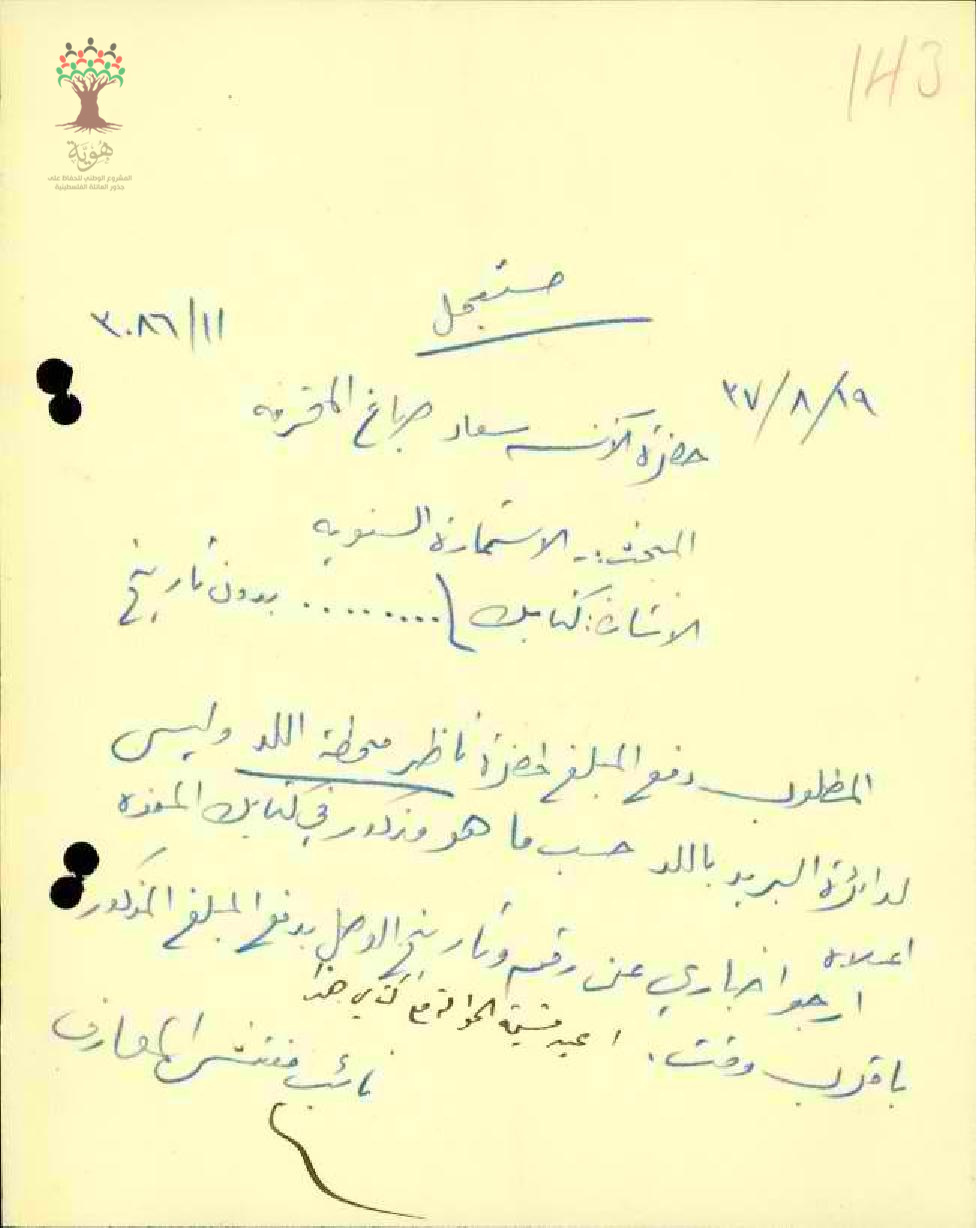 143
هُويَّة
المشروع الوطني للحفاظ على
جذور العائلة الفلسطينية
مستعجل
١١/٣٠٨٦
٣٧/٨/١٩
حضرة الآنسه سعاد صباغ المحترمه
المبحث :- الاستمارة السنويه
الاشارة: كتابك ......... بدون تاريخ
المطلوب دفع المبلغ لحضرة ناظر محطة اللد وليس
لدائرة البريد باللد حسب ما هو مذكور في كتابك المنوه
اعلاه
ارجو اخباري عن رقم وتاريخ الوصل بدفع المبلغ المذكور
باقرب وقت. اعيد قسيمة الحوالة مع كتابي هذا
نائب مفتش المعارف